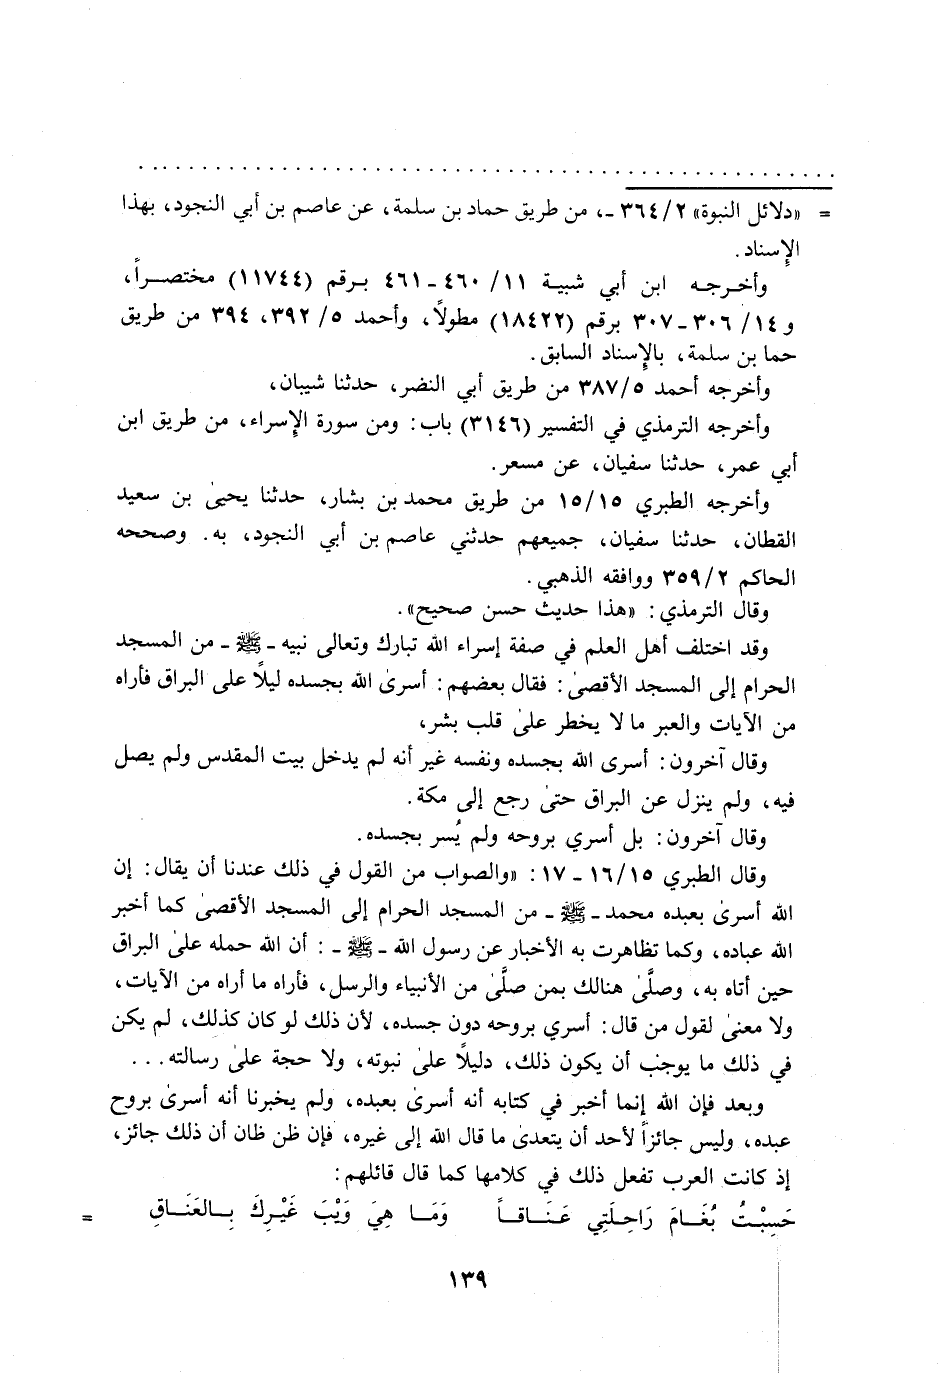 . . . . . . . . . . . . . . . . . . . . . . . . . . . . . . . . . . . . . . . . . . . . . . . . . . . .
= «دلائل النبوة» ٢/ ٣٦٤ -، من طريق حماد بن سلمة، عن عاصم بن أبي النجود، بهذا
الإِسناد.
وأخرجه ابن أبي شيبة ١١/ ٤٦٠ - ٤٦١ برقم (١١٧٤٤) مختصراً،
و ١٤/ ٣٠٦ - ٣٠٧ برقم (١٨٤٢٢) مطولاً، وأحمد ٥/ ٣٩٢، ٣٩٤ من طريق
حما بن سلمة، بالإِسناد السابق.
وأخرجه أحمد ٥/ ٣٨٧ من طريق أبي النضر، حدثنا شيبان،
وأخرجه الترمذي في التفسير (٣١٤٦) باب: ومن سورة الإِسراء، من طريق ابن
أبي عمر، حدثنا سفيان، عن مسعر.
وأخرجه الطبري ١٥/ ١٥ من طريق محمد بن بشار، حدثنا يحيىٰ بن سعيد
القطان، حدثنا سفيان، جميعهم حدثني عاصم بن أبي النجود، به. وصححه
الحاكم ٢/ ٣٥٩ ووافقه الذهبي.
وقال الترمذي: «هذا حديث حسن صحيح».
وقد اختلف أهل العلم في صفة إسراء الله تبارك وتعالى نبيه - ﷺ - من المسجد
الحرام إلى المسجد الأقصىٰ: فقال بعضهم: أسرىٰ الله بجسده ليلاً علىٰ البراق فأراه
من الآيات والعبر ما لا يخطر علىٰ قلب بشر،
وقال آخرون: أسرى الله بجسده ونفسه غير أنه لم يدخل بيت المقدس ولم يصل
فيه، ولم ينزل عن البراق حتىٰ رجع إلى مكة.
وقال آخرون: بل أسري بروحه ولم يُسر بجسده.
وقال الطبري ١٥/ ١٦ - ١٧: «والصواب من القول في ذلك عندنا أن يقال: إن
الله أسرىٰ بعبده محمد - ﷺ - من المسجد الحرام إلى المسجد الأقصىٰ كما أخبر
الله عباده، وكما تظاهرت به الأخبار عن رسول الله - ﷺ -: أن الله حمله علىٰ البراق
حين أتاه به، وصلَّىٰ هنالك بمن صلَّىٰ من الأنبياء والرسل، فأراه ما أراه من الآيات،
ولا معنىٰ لقول من قال: أسري بروحه دون جسده، لأن ذلك لو كان كذلك، لم يكن
في ذلك ما يوجب أن يكون ذلك، دليلاً علىٰ نبوته، ولا حجة علىٰ رسالته...
وبعد فإن الله إنما أخبر في كتابه أنه أسرىٰ بعبده، ولم يخبرنا أنه أسرىٰ بروح
عبده، وليس جائزاً لأحد أن يتعدىٰ ما قال الله إلى غيره، فإن ظن ظان أن ذلك جائز،
إذ كانت العرب تفعل ذلك في كلامها كما قال قائلهم:
حَسِبْتُ بُغَامَ رَاحِلَتِي عَنَاقاً وَمَا هِيَ وَيْبَ غَيْرِكَ بِالعَنَاقِ =
١٣٩